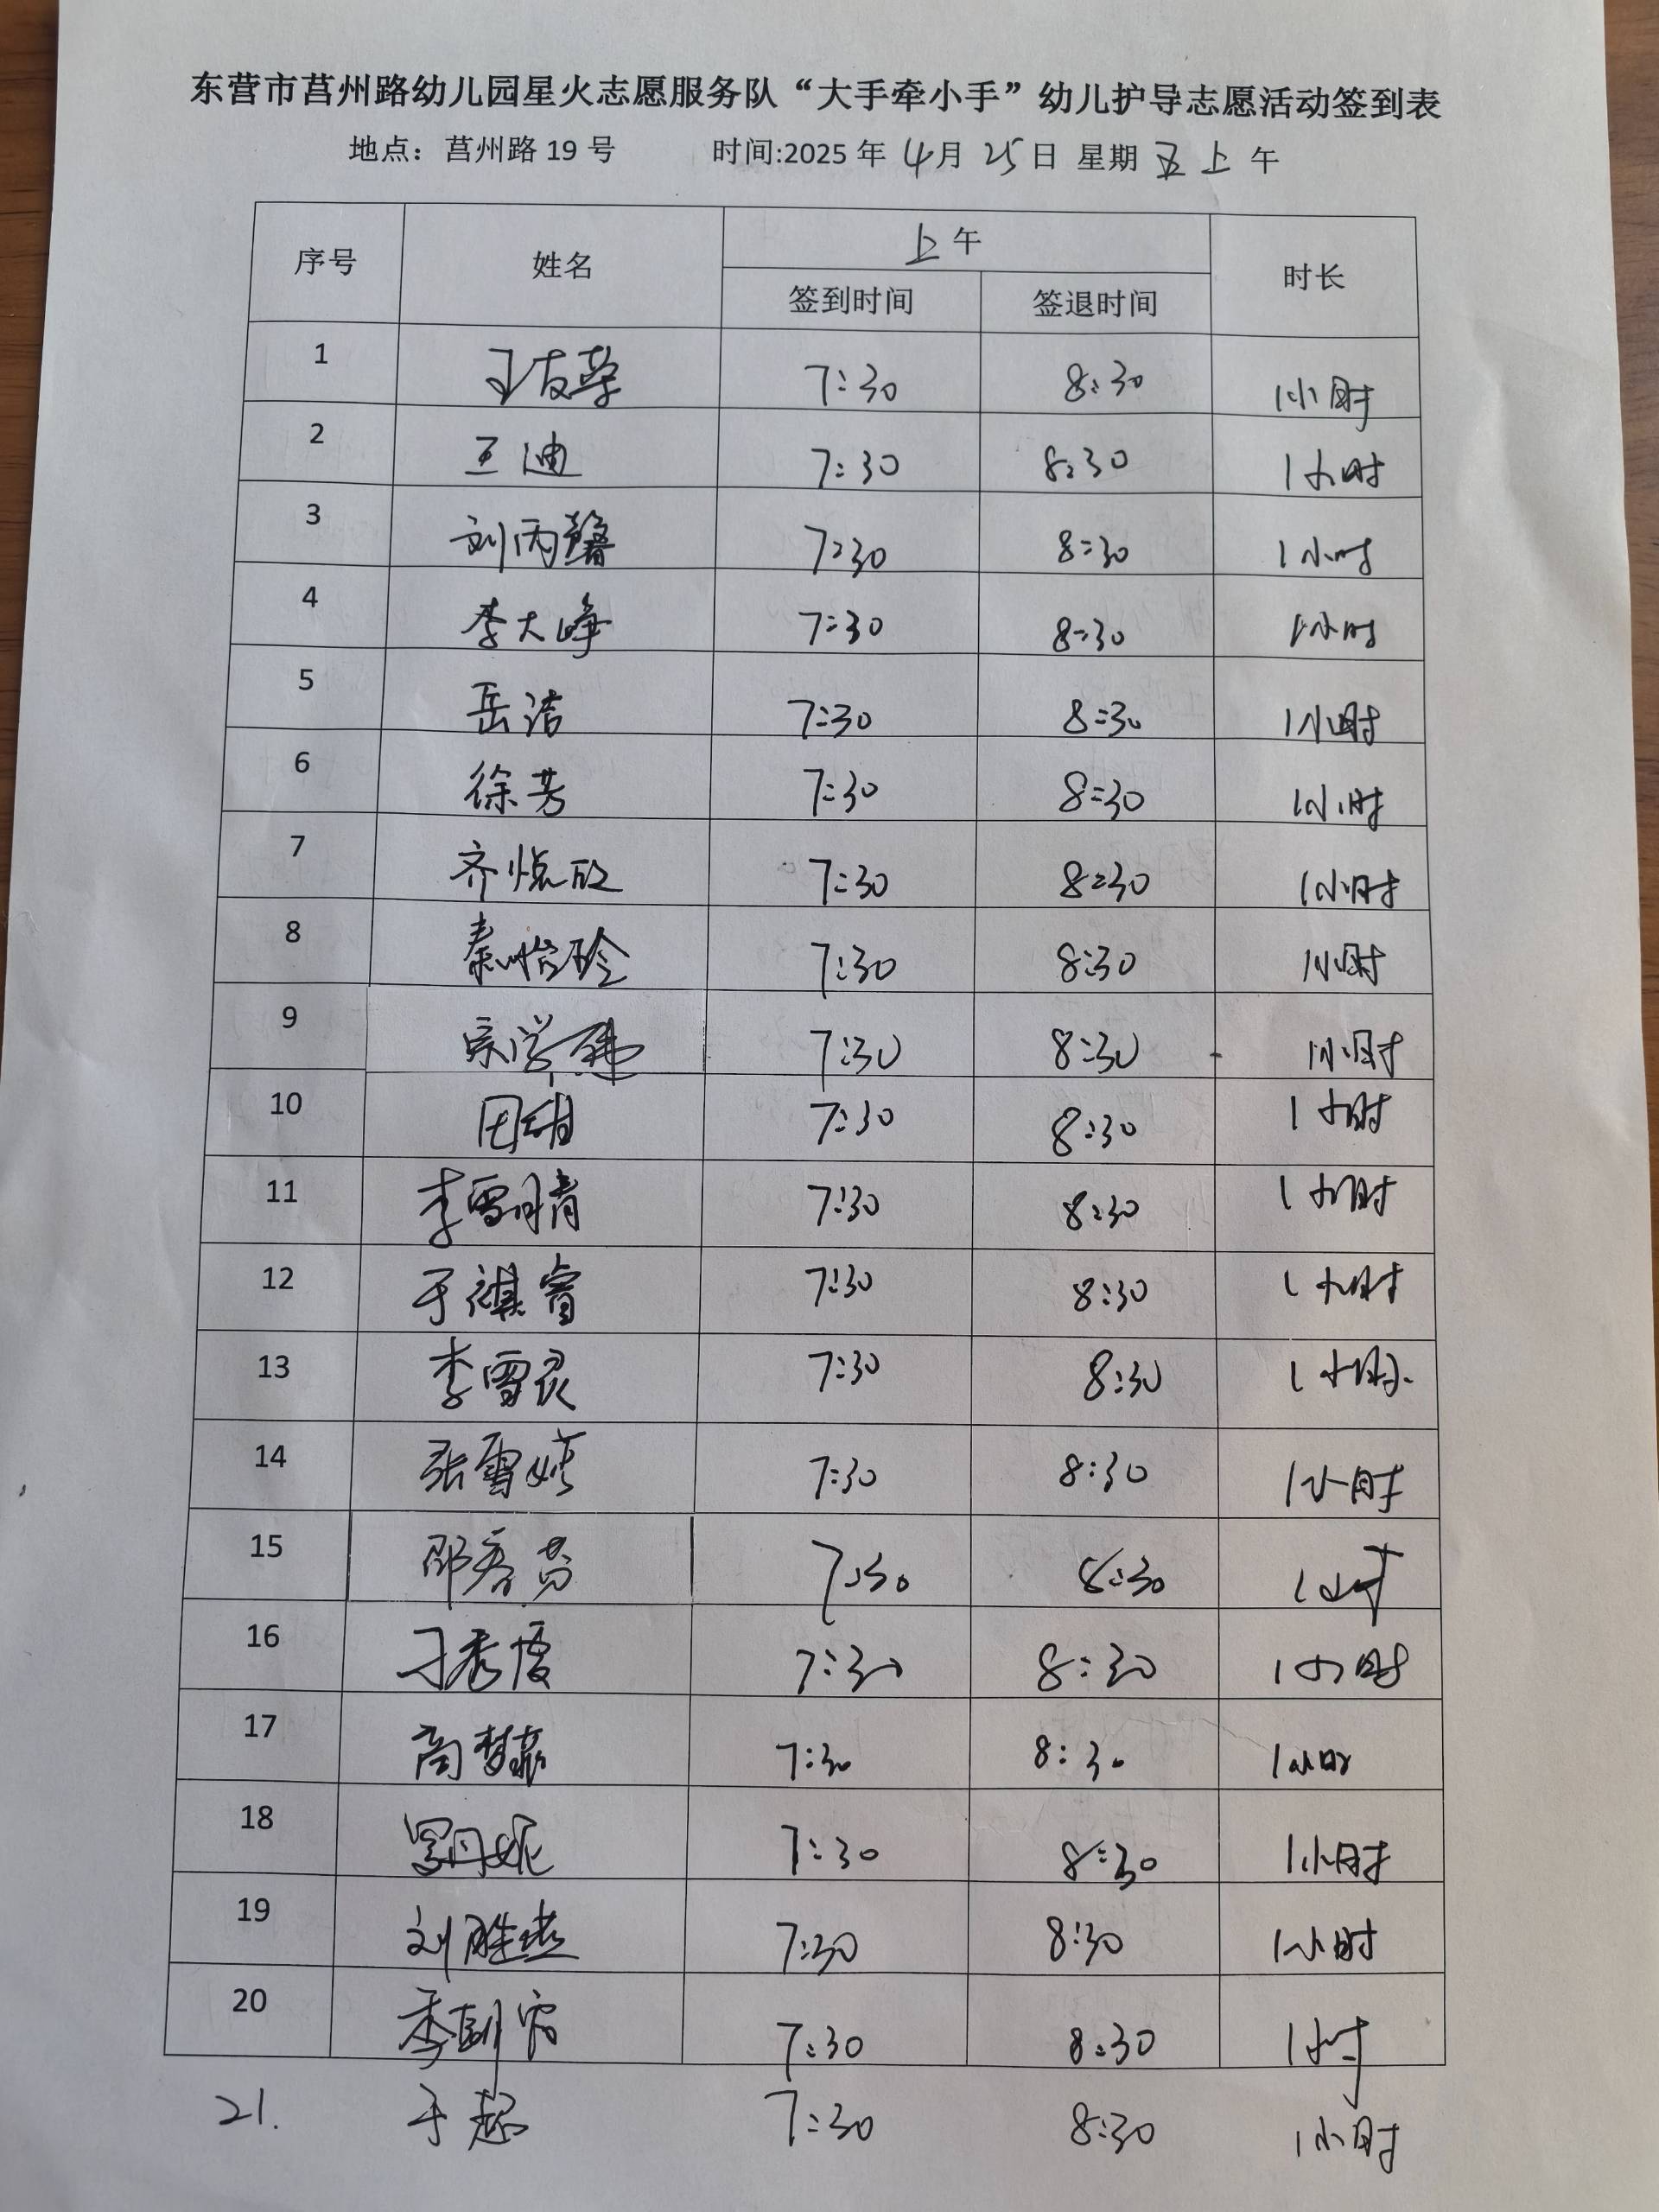 东营市莒州路幼儿园星火志愿服务队“大手牵小手”幼儿护导志愿活动签到表
地点：莒州路 19 号 时间:2025 年 4 月 25 日 星期 五 上 午
序号 姓名 上午 时长
签到时间 签退时间
1 王友荣 7:30 8:30 1小时
2 王迪 7:30 8:30 1小时
3 刘丙馨 7:30 8:30 1小时
4 李大峥 7:30 8:30 1小时
5 岳洁 7:30 8:30 1小时
6 徐芳 7:30 8:30 1小时
7 齐悦欣 7:30 8:30 1小时
8 秦怡玲 7:30 8:30 1小时
9 宗学 7:30 8:30 1小时
10 田甜 7:30 8:30 1小时
11 李雪晴 7:30 8:30 1小时
12 于祺睿 7:30 8:30 1小时
13 李雪灵 7:30 8:30 1小时
14 张雪婷 7:30 8:30 1小时
15 邵秀芬 7:30 8:30 1小时
16 7:30 8:30 1小时
17 商梦菲 7:30 8:30 1小时
18 7:30 8:30 1小时
19 刘胜燕 7:30 8:30 1小时
20 7:30 8:30 1小时
21. 于超 7:30 8:30 1小时